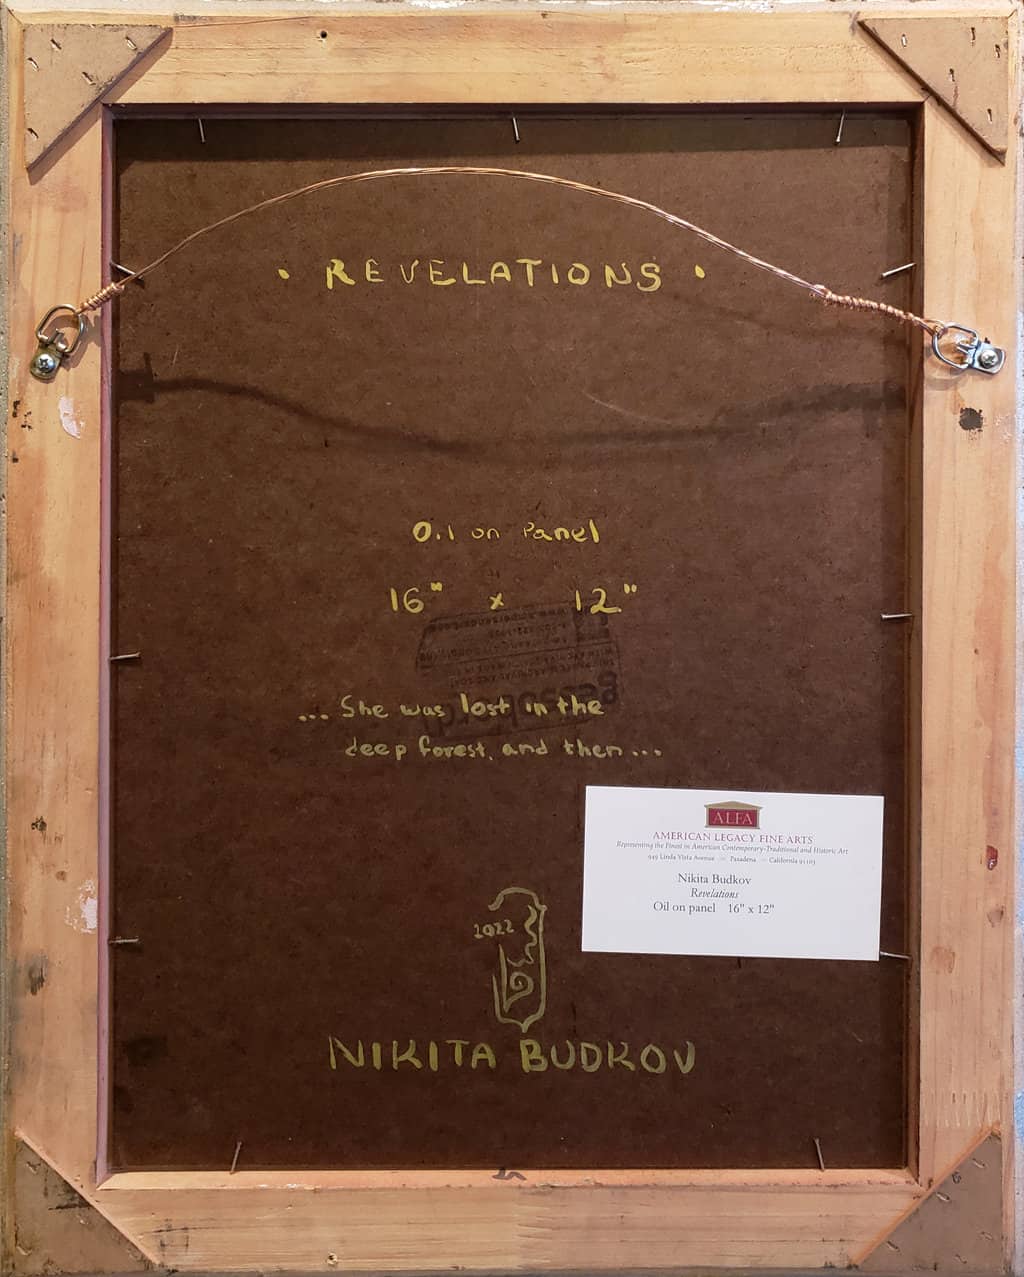 · REVELATIONS ·
Oil on Panel
16" x 12"
gessobord
... She was lost in the
deep forest, and then ...
ALFA
AMERICAN LEGACY FINE ARTS
Representing the Finest in American Contemporary-Traditional and Historic Art
949 Linda Vista Avenue — Pasadena — California 91103
Nikita Budkov
Revelations
Oil on panel 16" x 12"
2022
NIKITA BUDKOV